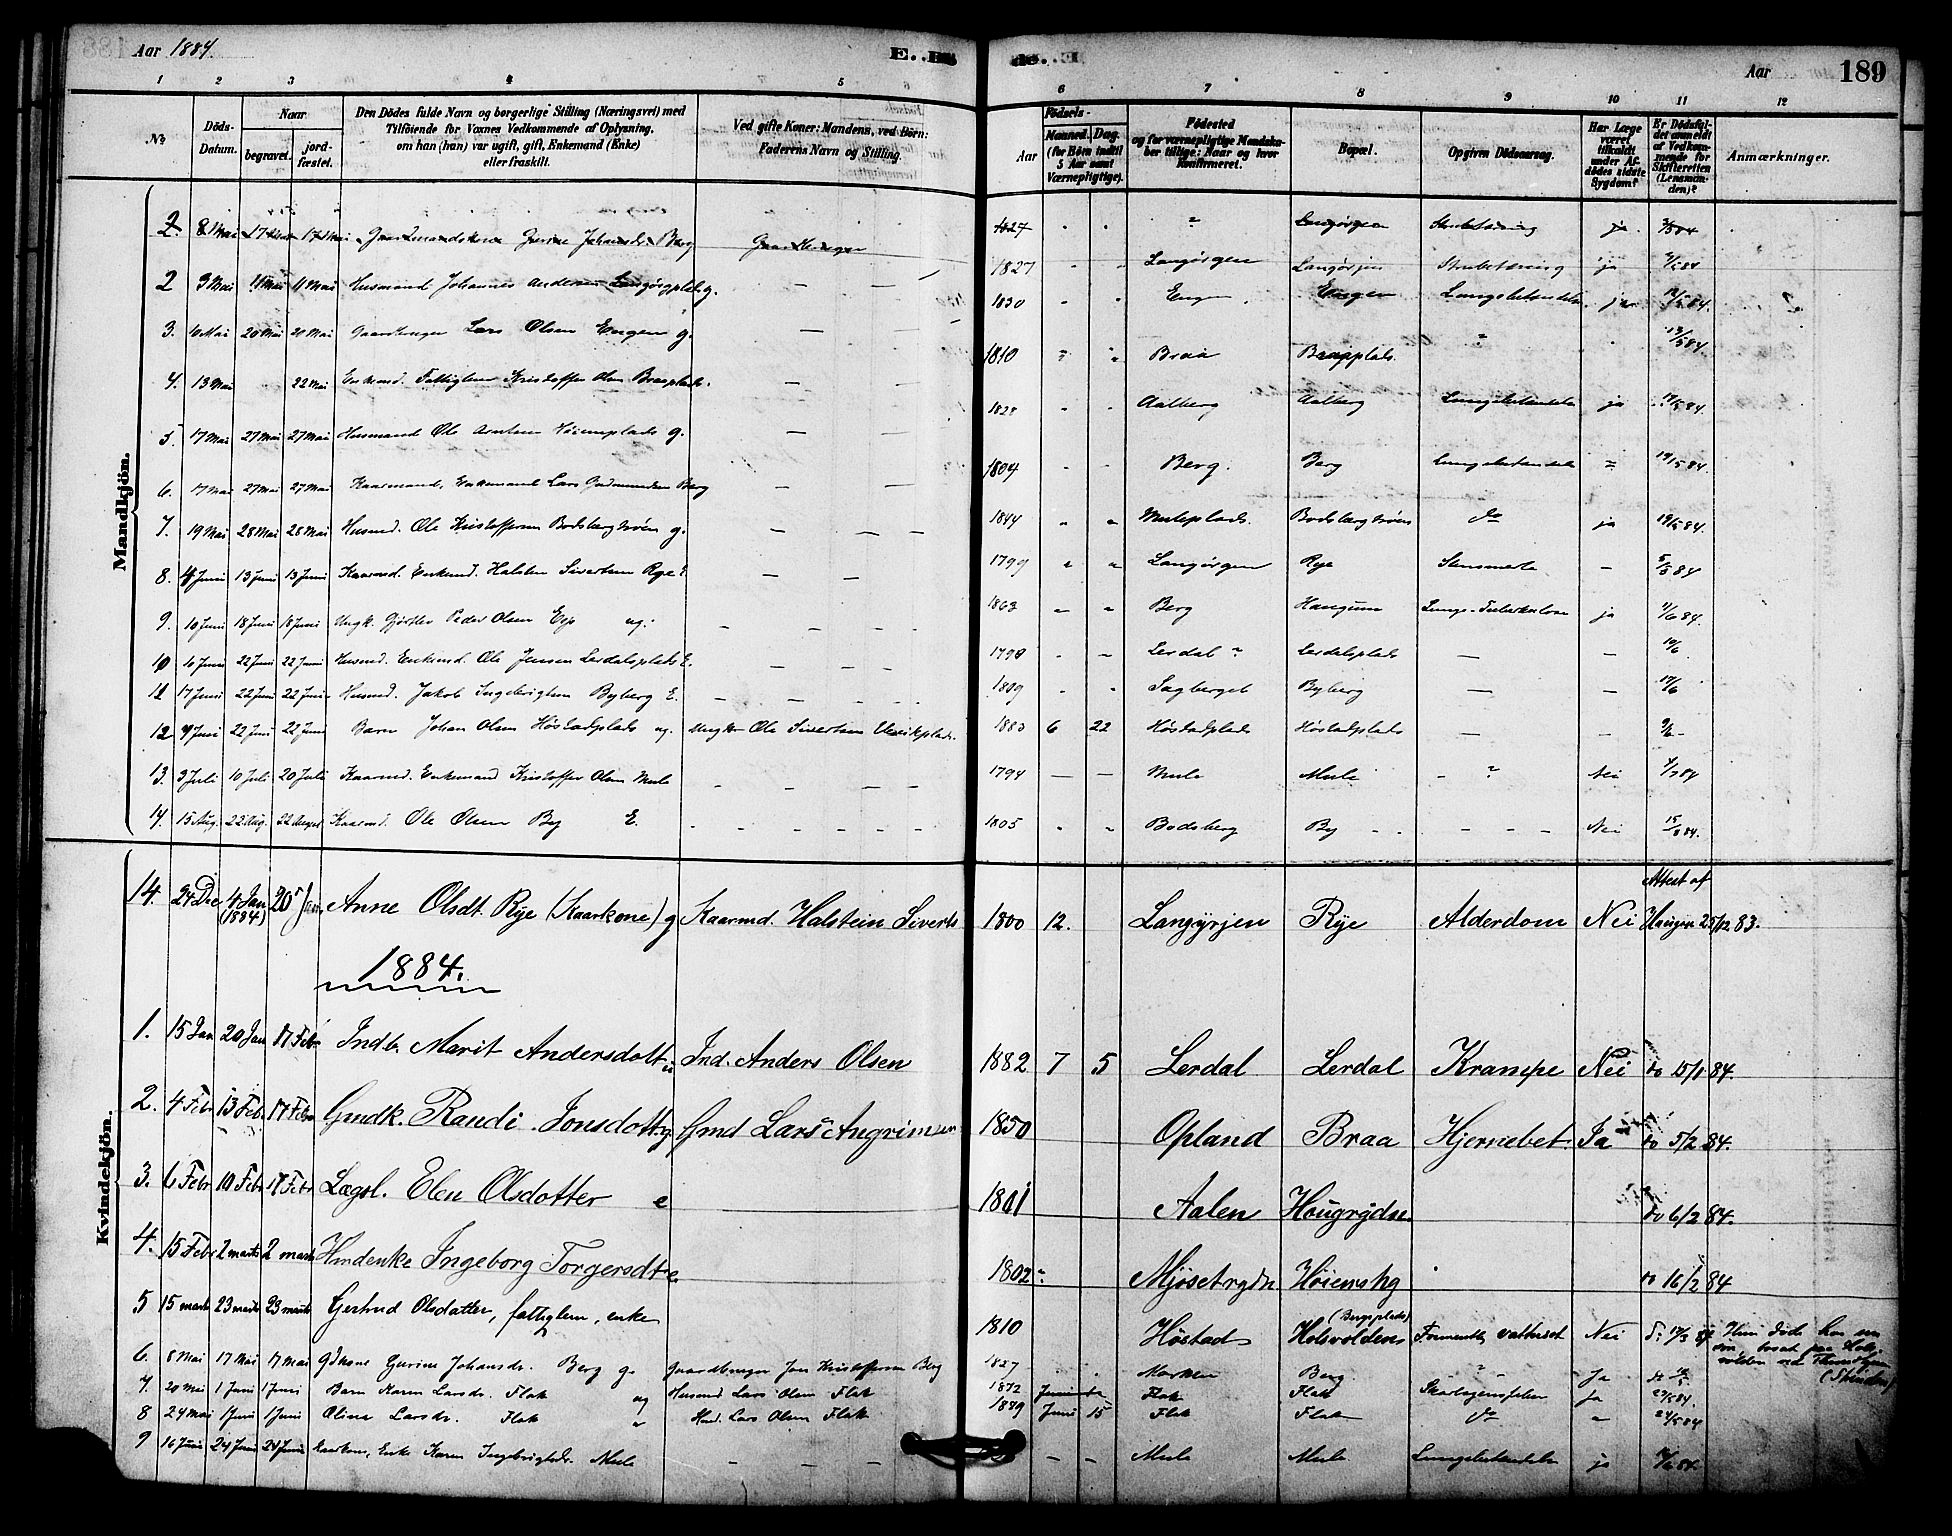 Aar 1884.
E. Dø
de. E
Aar
189
1 2 3 4 5 6 7 8 9 10 11 12
No
Døds-Datum.
Naar
begravet.
jord-fæstet.
Den Dödes fulde Navn og borgerlige Stilling (Næringsvei) med
Tilföiende for Voxnes Vedkommende af Oplysning,
om han (hun) var ugift, gift, Enkemand (Enke)
eller fraskilt.
Ved gifte Koner: Mandens, ved Börn:
Faderens Navn og Stilling.
Födsels-
Aar
Maaned. Dag.
(for Börn indtil
5 Aar samt
Værnepligtige).
Födested
og for værnepligtige Mandska-
ber tillige: Naar og hvor
konfirmeret.
Bopæl.
Opgiven Dödsaarsag.
Har Læge
været
tilkaldt
under Af-
dödes sidste
Sygdom?
Er Dödsfal-
det anmeldt
af Vedkom-
mende for
Skifteretten
(Lensman-
den)?
Anmærkninger.
Mandkjön.
2. 8 Mai 17 Mai 17 Mai Johansdr. Berg 1827 " Langørgen ja
2 9 Mai 11 Mai 11 Mai Husmand Johannes Andersen g. — — 1827 " " Langørgen Langørjen Strubetæring ja
3. 10 Mai 20 Mai 20 Mai Gaardbruger Lars Olsen Engen g. — 1830 " " Engen Engen Lungebetændelse ja 12/5 84.
4. 13 Mai 22 Mai Enkemd. Fattiglem Kristoffer Olsen Braaplads. — 1810 " " Braa Braaplads. " 13/5 84.
5. 17 Mai 27 Mai 27 Mai Husmand Ole Arntsen Høiemsplads g. — 1828 " " Aalberg Aalberg Lungebetændelse ja
6. 17 Mai 27 Mai 27 Mai Kaarmand, Enkemand Lars Gudmundsen Berg — — 1804 " " Berg. Berg Lungebetændelse " 19/5 84.
7. 19 Mai 28 Mai 28 Mai Husmd. Ole Kristoffersen Bodsbergtrøen g. — — — 1844 " " Muleplads. Bodsbergtrøen do ja 19/5 84.
8. 4 Juni 13 Juni 13 Juni Kaarmd. Enkemd. Halsten Sivertsen Rye E. — — 1799 " " Langørgen Rye — 84
9. 10 Juni 18 Juni 18 Juni Ungk. Peder Olsen Esp ug. — — — 1863 " " Berg Hangum Lunge-Tuberkulose ja 11/6 84.
10 10 Juni 22 Juni 22 Juni Husmd. Enkemd. Ole Jensen Lerdalsplads E. — — — 1798 " " Lerdal ? Lerdalsplads — — 10/6.
11 17 Juni 22 Juni 22 Juni Husmd. Jakob Ingebrigtsen Byberg E. — — — 1809 " " Sagberget Byberg — — 17/6
12 9 Juni 22 Juni 22 Juni Barn Johan Olsen Høstadplads ug. Ungkr Ole Sivertsen 1883 6 22 Høstadplads Høstadplads — — 9/6 -
13. 3 Juli 10 Juli 20 Juli Kaarmd. Enkemand Kristoffer Olsen Mule — — — 1794 — — Mule Mule - ? Nei 4/7 84
14. 15 Aug. 22 Aug. 22 August Kaarmd. Ole Olsen By E. - - - - - 1805 " " Bodsberg By - - - - - Nei 15/8 84.
Kvindekjön.
14. 24 Dec 4 Jan (1884) 20 Jan. Anne Olsdt. Rye (Kaarkone) g Kaarmd. Halstein Siverts 1800 12. Langyrjen Rye Alderdom Nei Attest af Haugen 25/12 83.
1884.
1. 15 Jan 20 Jan 17 Febr Indb. Marit Andersdatt. u Ind. Anders Olsen 1882 7 5 Lerdal Lerdal Krampe Nei do 15/1 84.
2. 4 Febr 13 Feb. 17 Febr Gmdk. Randi Jonsdott. g Gmd Lars Angrimsen 1850 Opland Braa Hjernebet. Ja do 5/2 84.
3. 6 Febr 10 Febr 17 Febr Lægsl. Elen Olsdotter e 1801 Aalen Hougrydn. do 6/2 84.
4. 15 Febr 2 marts 2 marts Hmdenke Ingeborg Torgersdt. e 1802 ? Mjøsetrydn. Høienshg do 16/2 84
5 15 marts 23 marts 23 marts Gertrud Olsdatter, fattiglem, enke 1810 Høstad Holsvolden (Bergsplads) Formentlig vattersot Nei do 17/3 84 Hun døde hos sin
søn, bosat paa Hols-
volden ved Throndhjem
(Strinden)
6. 8 Mai 17 Mai 17 Mai Gurine Johansdr. Berg g. Gaardbruger Jon Kristoffersen Berg 1827 " Berg " Ja
7. 20 Mai 1 Juni 1 Juni Barn Karen Larsdr. Flak ug Husmd Lars Olsen Flak Flak Flak Skarlagensfeber ja
8 24 Mai 1 Juni 1 Juni Olina Larsdr. Flak " Husd. Lars Olsen Flak Juni 15 Flak Flak do " 24/5 84
9 16 Juni 24 Juni 24 Juni Kaarkone, Enke Karen Ingebrigtsdr. Mule — — — — — Mule Mule Lungebetændelse ja